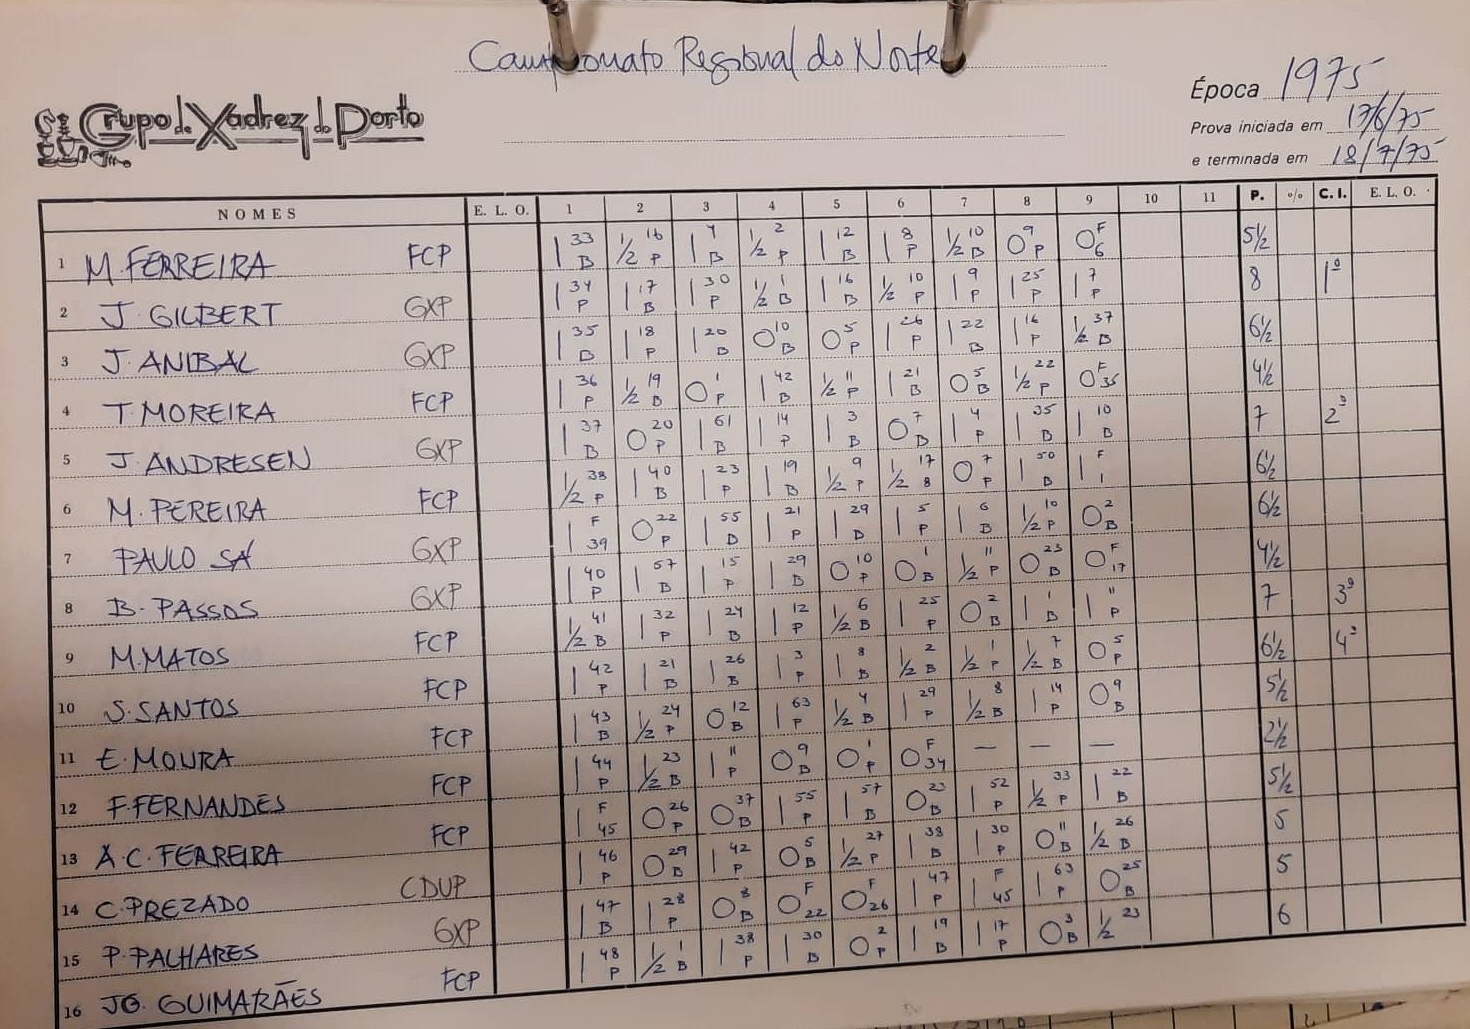 Campeonato Regional do Norte
Grupo de Xadrez do Porto
Época 1975
Prova iniciada em 17/6/75
e terminada em 18/7/75
NOMES E. L. O. 1 2 3 4 5 6 7 8 9 10 11 P. % C. I. E. L. O.
1 M. FERREIRA FCP 1 33 B ½ 16 P 1 4 B ½ 2 P 1 12 B 1 8 P ½ 10 B 0 9 P 0 F 6 5½
2 J. GILBERT GXP 1 34 P 1 17 B 1 30 P ½ 1 B 1 16 B ½ 10 P 1 9 P 1 25 P 1 7 P 8 1º
3 J. ANIBAL GXP 1 35 B 1 18 P 1 20 B 0 10 B 0 5 P 1 26 P 1 22 B 1 16 P ½ 37 B 6½
4 T. MOREIRA FCP 1 36 P ½ 19 B 0 1 P 1 42 B ½ 11 P 1 21 B 0 5 B ½ 22 P 0 F 35 4½
5 J. ANDRESEN GXP 1 37 B 0 20 P 1 61 B 1 14 P 1 3 B 0 7 B 1 4 P 1 35 B 1 10 B 7 2º
6 M. PEREIRA FCP ½ 38 P 1 40 B 1 23 P 1 19 B ½ 9 P ½ 17 B 0 7 P 1 50 B 1 F 1 6½
7 PAULO SÁ GXP 1 F 39 0 22 P 1 55 B 1 21 P 1 29 B 1 5 P 1 6 B ½ 10 P 0 2 B 6½
8 B. PASSOS GXP 1 40 P 1 57 B 1 15 P 1 29 B 0 10 P 0 1 B ½ 11 P 0 23 B 0 F 17 4½
9 M. MATOS FCP ½ 41 B 1 32 P 1 24 B 1 12 P ½ 6 B 1 25 P 0 2 B 1 1 B 1 11 P 7 3º
10 S. SANTOS FCP 1 42 P 1 21 B 1 26 B 1 3 P 1 8 B ½ 2 B ½ 1 P ½ 7 B 0 5 P 6½ 4º
11 E. MOURA FCP 1 43 B ½ 24 P 0 12 B 1 63 P ½ 4 B 1 29 P ½ 8 B 1 14 P 0 9 B 5½
12 F. FERNANDES FCP 1 44 P ½ 23 B 1 11 P 0 9 B 0 1 P 0 F 34 — — — 2½
13 A. C. FERREIRA FCP 1 F 45 0 26 P 0 37 B 1 55 P 1 57 B 0 23 B 1 52 P ½ 33 P 1 22 B 5½
14 C. PREZADO CDUP 1 46 P 0 29 B 1 42 P 0 5 B ½ 27 P 1 38 B 1 30 P 0 11 B ½ 26 B 5
15 P. PALHARES GXP 1 47 B 1 28 P 0 8 B 0 F 22 0 F 26 1 47 P 1 F 45 1 63 P 0 25 B 5
16 JG. GUIMARÃES FCP 1 48 P ½ 1 B 1 38 P 1 30 B 0 2 P 1 19 B 1 17 P 0 3 B ½ 23 6